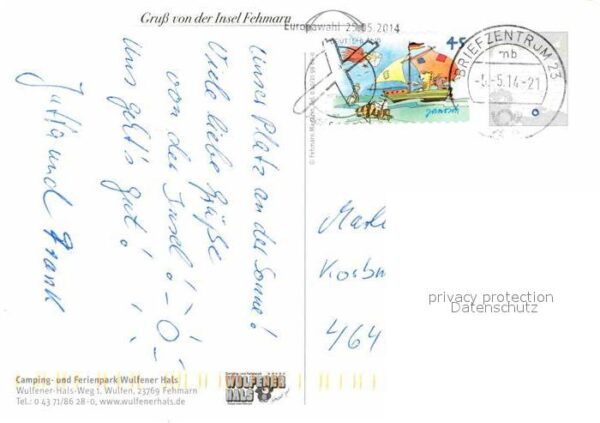 Gruß von der Insel Fehmarn
Unser Platz an der Sonne!
Viele liebe Grüße
von der Insel! -O-
Uns geht's gut!
Jutta und Frank
Europawahl 25.05.2014
45
Janosch
BRIEFZENTRUM 23
mb
-5.14-21
© Fehmarn
Mark
464
privacy protection
Datenschutz
Camping- und Ferienpark Wulfener Hals
Wulfener-Hals-Weg 1, Wulfen, 23769 Fehmarn
Tel.: 0 43 71/86 28-0; www.wulfenerhals.de
WULFENER
HALS